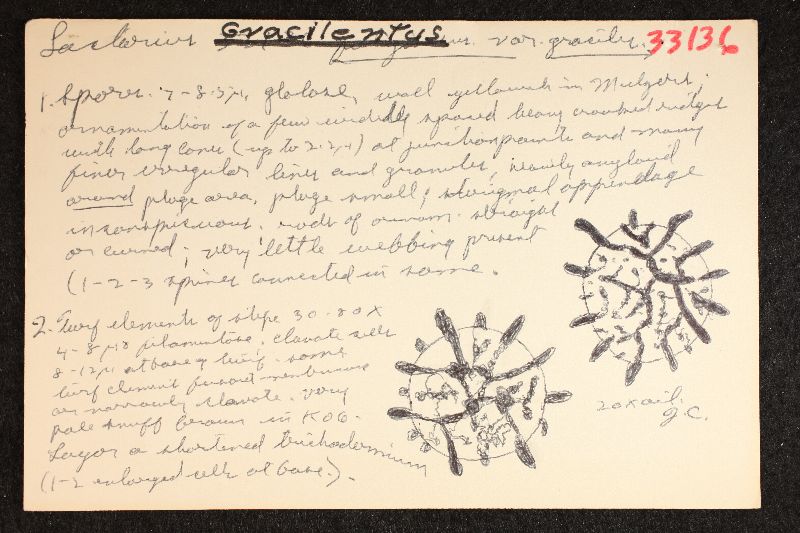 Lactarius Gracilentus var. gracilis 33136
1. Spores 7-8.5µ, globose, wall yellowish in Melzers;
ornamentation of a few widely spaced heavy crooked ridges
with long cones (up to 2.2µ) at junction points and many
finer irregular lines and granules, nearly amyloid
around plage area, plage small; sterigmal appendage
inconspicuous. rods of ornam. straight
or curved; very little webbing present
(1-2-3 spines connected in some.
2. Turf elements of stipe 30-80 X
4-8µ, filamentose, clavate cells
8-12µ at base of turf. some
turf element
or narrowly clavate. very
pale snuff brown in KOH.
Layer a shortened trichodermium
(1-2 enlarged cells at base.).
20x oil.
J.C.